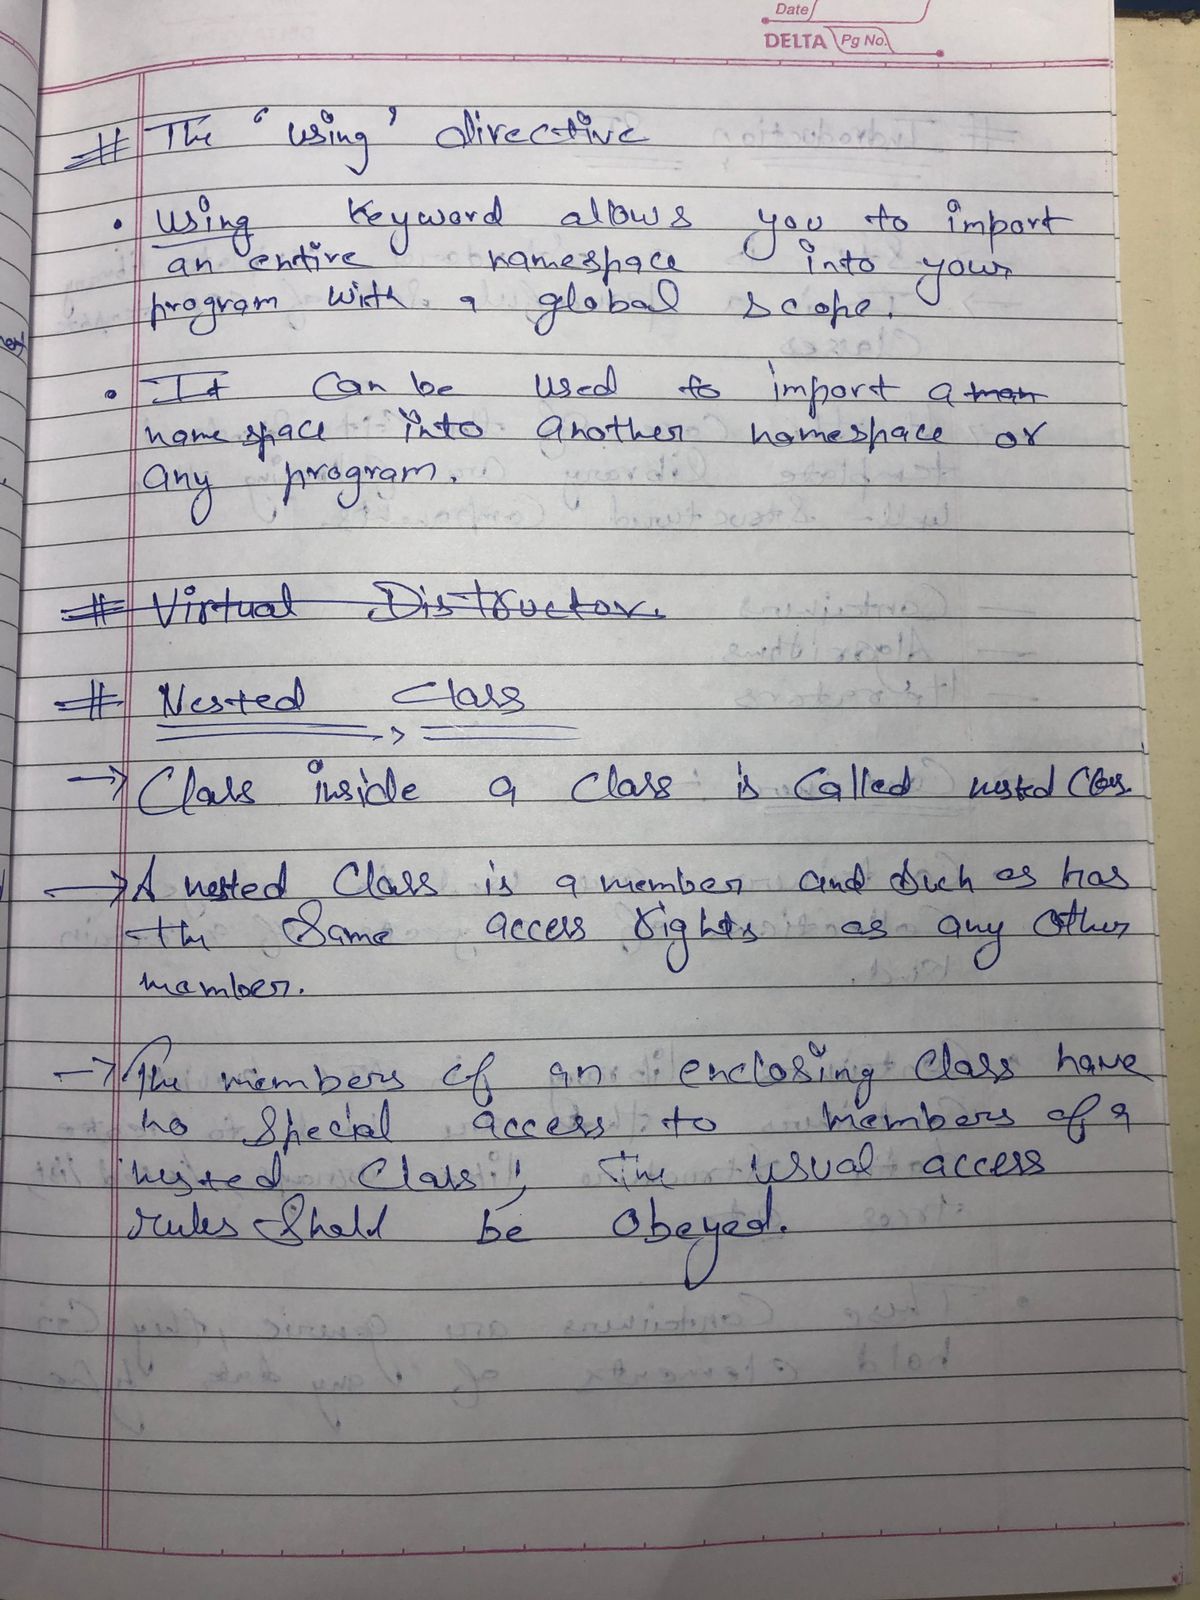 Date
DELTA Pg No.
# The 'using' directive
• using Keyword allows you to import
an entire namespace into your
program with a global scope.
• It Can be used to import a
name space into another namespace or
any program.
# Virtual Distructor.
# Nested Class
→ Class inside a class is called nested class.
→ A nested Class is a member and such as has
the Same access rights as any other
member.
→ The members of an enclosing Class have
no Special access to members of a
nested Class; The usual access
rules Shall be Obeyed.